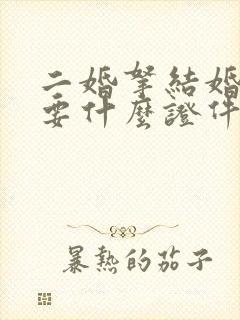 二婚拏結婚
要什麼證件
暴熱的茄子